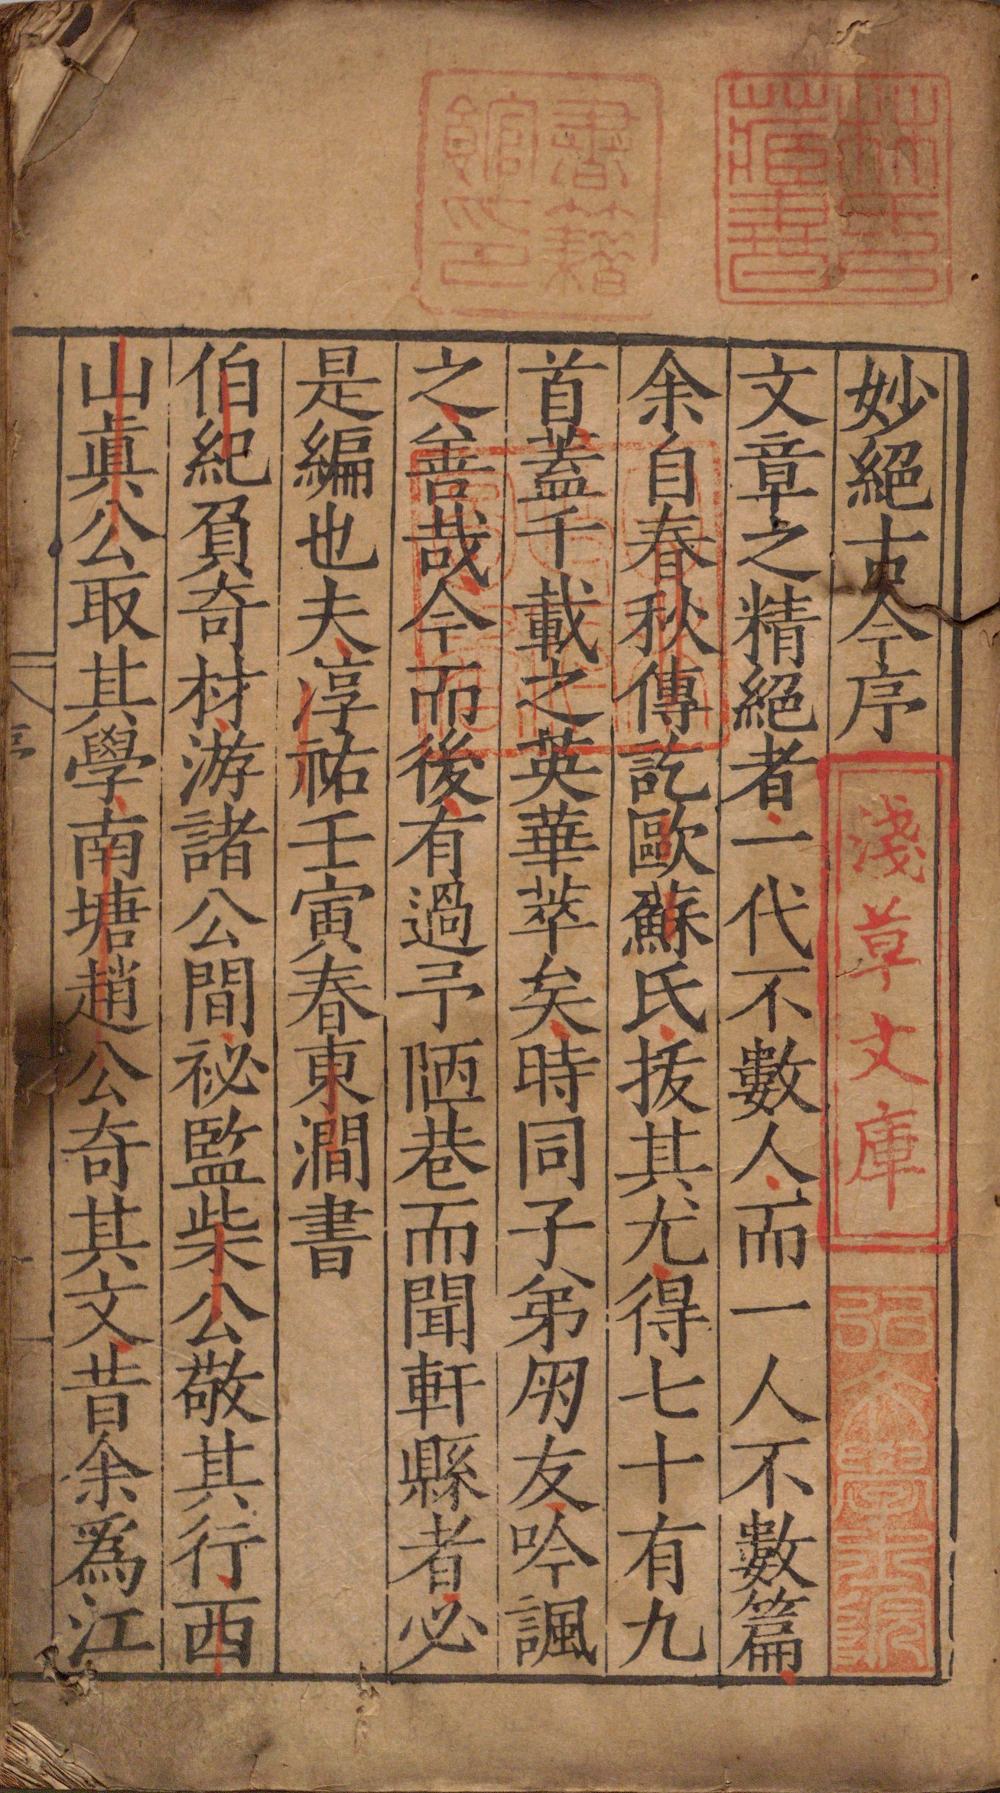 妙絕古今序
文章之精絕者一代不數人而一人不數篇
余自春秋傳訖歐蘇氏拔其尤得七十有九
首蓋千載之英華萃矣時同子弟朋友吟諷
之善哉今而後有過予陋巷而聞軒縣者必
是編也夫淳祐壬寅春東澗書
伯紀負奇材游諸公間祕監柴公敬其行西
山眞公取其學南塘趙公奇其文昔余爲江
林氏藏書
書籍館印
淺草文庫